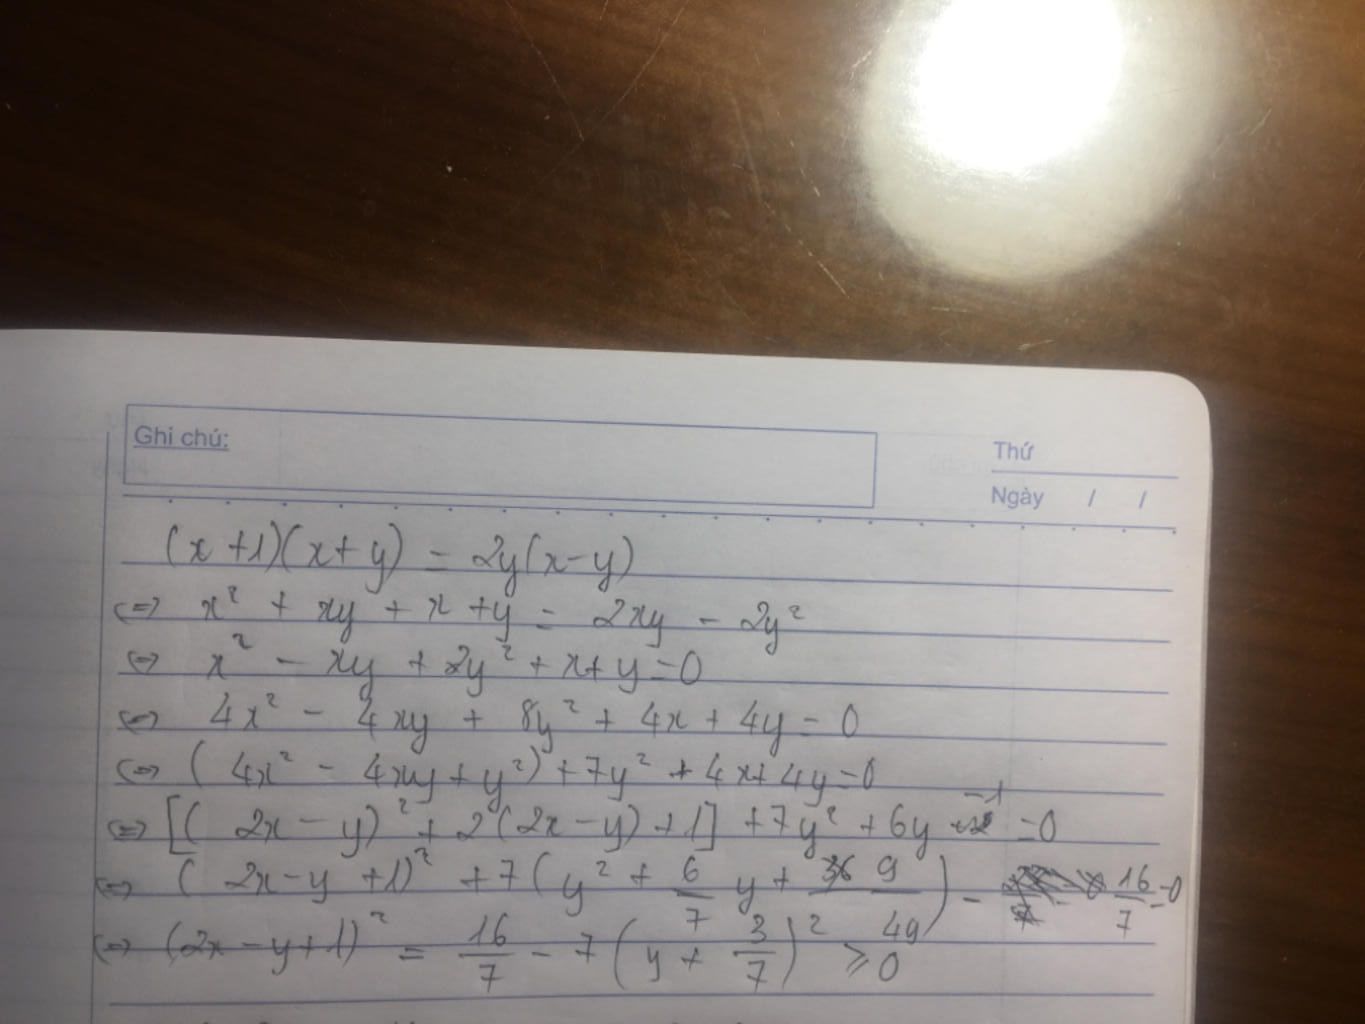 Ghi chú:
Thứ
Ngày / /
(x+1)(x+y) = 2y(x-y)
(=) x² + xy + x + y = 2xy - 2y²
(=) x² - xy + 2y² + x + y = 0
(=) 4x² - 4xy + 8y² + 4x + 4y = 0
(=) (4x² - 4xy + y²) + 7y² + 4x + 4y = 0
(=) [(2x - y)² + 2(2x - y) + 1] + 7y² + 6y - 1 = 0
(=) (2x - y + 1)² + 7(y² + 6/7 y + 9/49) - 16/7 = 0
(=) (2x - y + 1)² = 16/7 - 7(y + 3/7)² ≥ 0